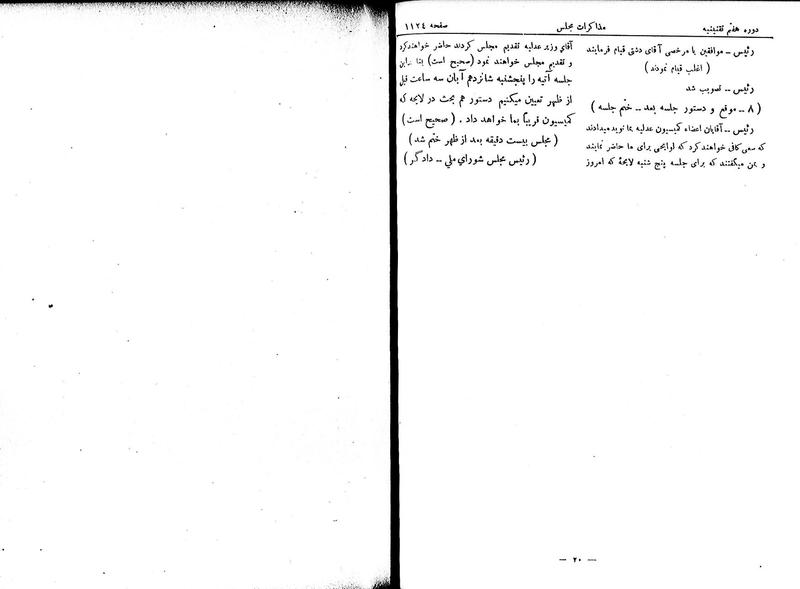 دوره هفتم تقنینیه
مذاکرات مجلس
صفحه ١١٢٤
رئیس ـ موافقین با مرخصی آقای دشتی قیام فرمایند
( اغلب قیام نمودند )
رئیس ـ ـ تصویب شد
( ٨ ـ ـ موقع و دستور جلسه بعد ـ ـ ختم جلسه )
رئیس ـ ـ آقایان اعضاء کمیسیون عدلیه بما نوید میدادند
که سعی کافی خواهند کرد که لوایحی برای ما حاضر نمایند
و بمن میگفتند که برای جلسه پنج شنبه لایحهٔ که امروز
آقای وزیر عدلیه تقدیم مجلس کردند حاضر خواهند کرد
و تقدیم مجلس خواهند نمود (صحیح است) بنا براین
جلسه آتیه را پنجشنبه شانزدهم آبان سه ساعت قبل
از ظهر تعیین میکنیم دستور هم بحث در لایحه که
کمیسیون قریباً بما خواهد داد . ( صحیح است )
( مجلس بیست دقیقه بعد از ظهر ختم شد )
( رئیس مجلس شورای ملی ـ ـ دادگر )
— ٢٠ —